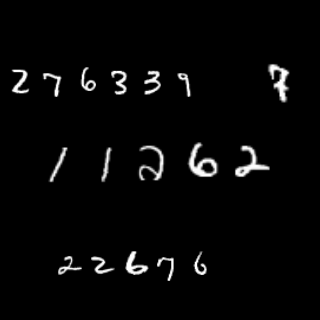 276339 7
11262
22676